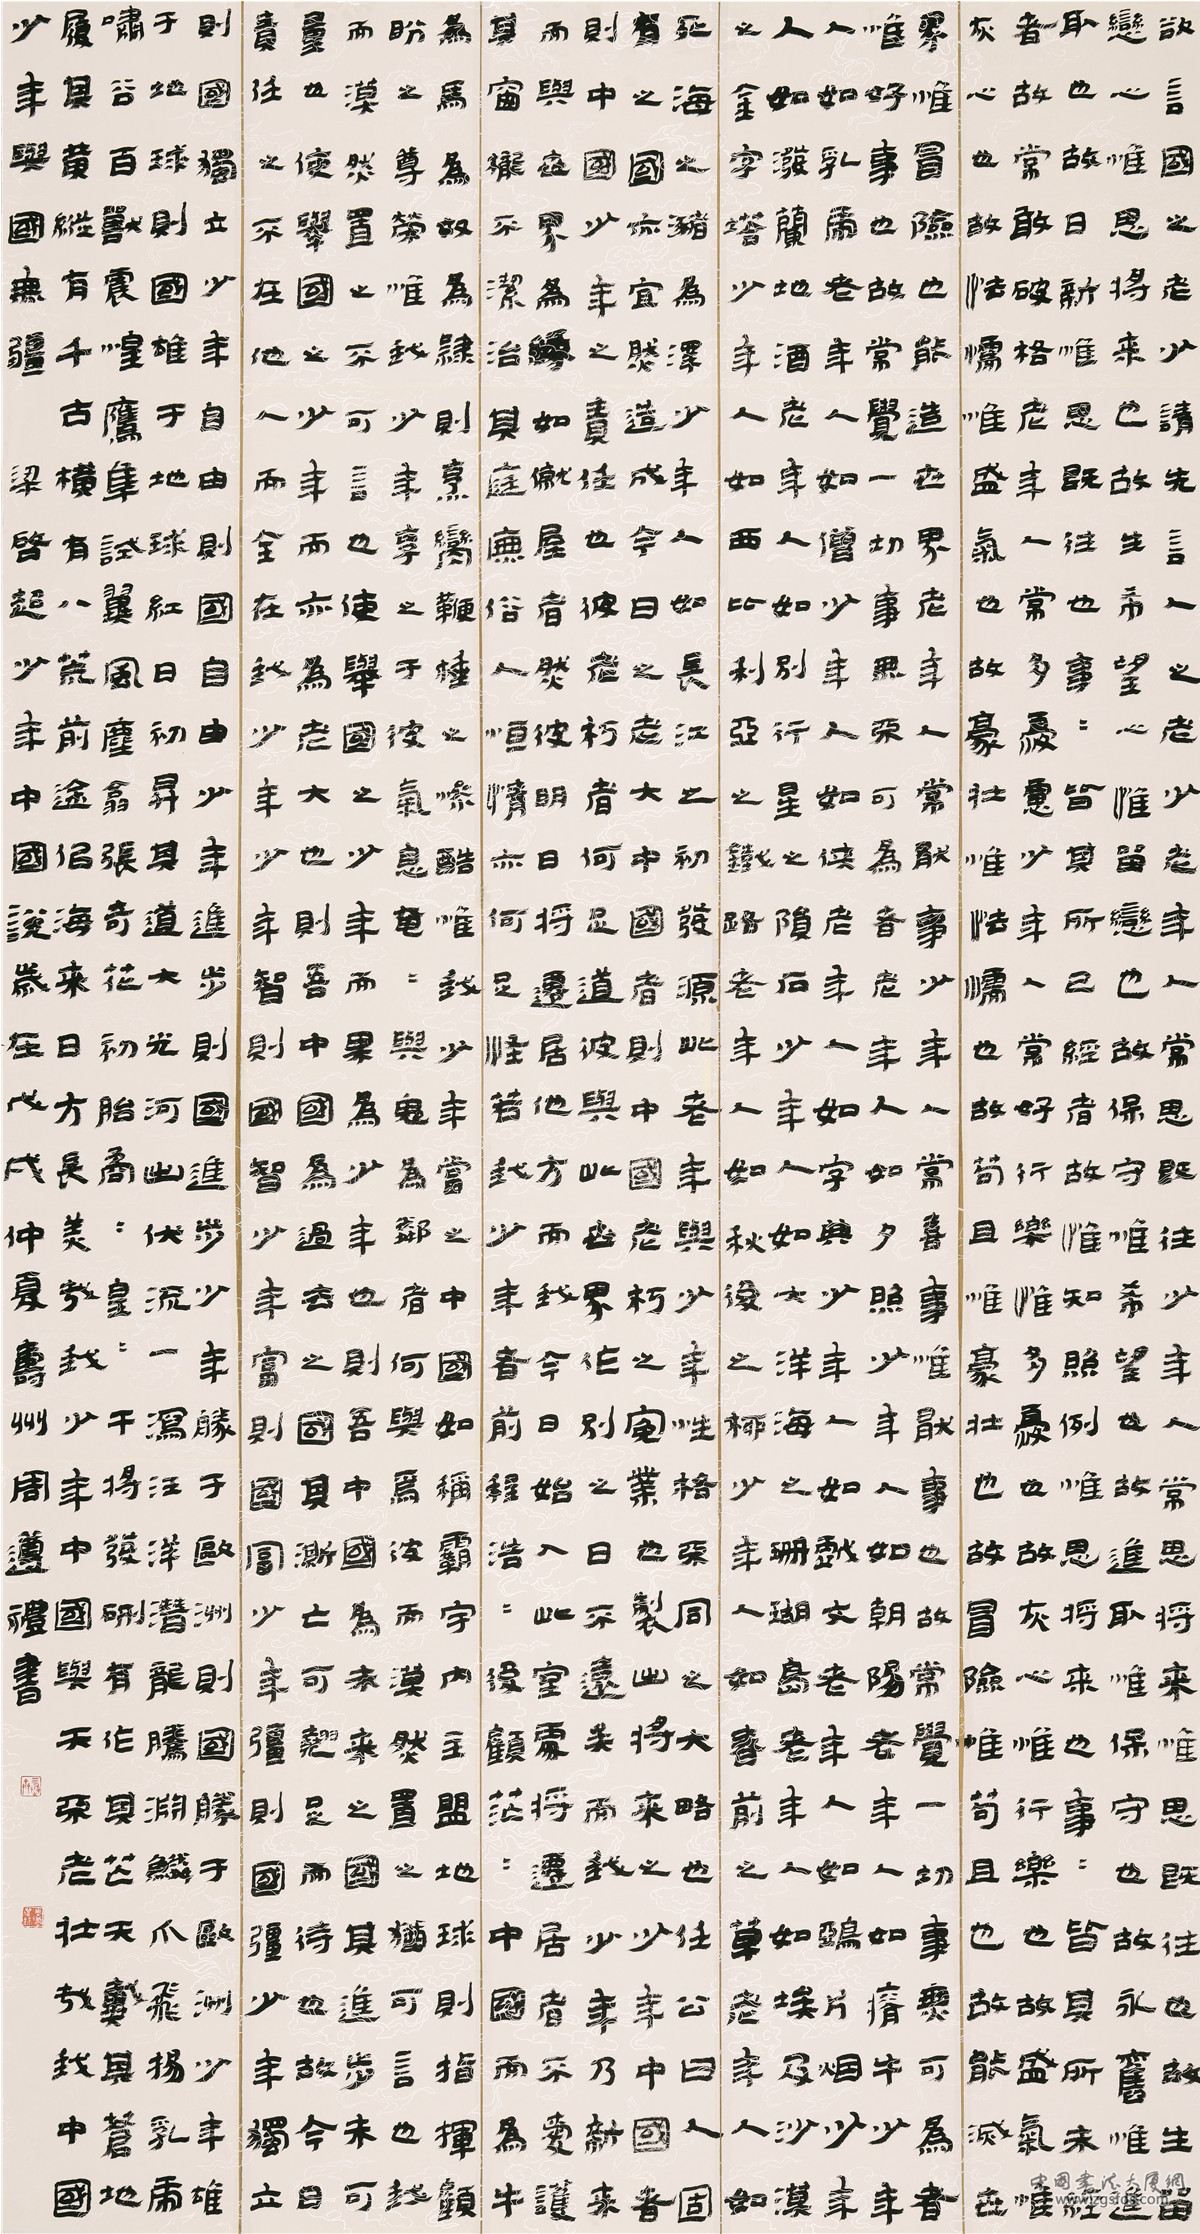 欲言國之老少請先言人之老少老年人常思既往少年人常思將來惟思既往也故生留
戀心惟思將來也故生希望心惟留戀也故保守惟希望也故進取惟保守也故永舊惟進
取也故日新惟思既往也事〃皆其所已經者故惟知照例惟思將來也事〃皆其所未經
者故常敢破格老年人常多憂慮少年人常好行樂惟多憂也故灰心惟行樂也故盛氣惟
灰心也故怯懦惟盛氣也故豪壯惟怯懦也故苟且惟豪壯也故冒險惟苟且也故能滅世
界惟冒險也能造世界老年人常厭事少年人常喜事惟厭事也故常覺一切事無可為者
惟好事也故常覺一切事無不可為者老年人如夕照少年人如朝陽老年人如瘠牛少年
人如乳虎老年人如僧少年人如俠老年人如字典少年人如戲文老年人如鴉片烟少年
人如潑蘭地酒老年人如別行星之隕石少年人如大洋海之珊瑚島老年人如埃及沙漠
之金字塔少年人如西比利亞之鐵路老年人如秋後之柳少年人如春前之草老年人如
死海之瀦為澤少年人如長江之初發源此老年與少年性格不同之大略也任公曰人固
有之國亦宜然造成今日之老大中國者則中國老朽之冤業也製出將來之少年中國者
則中國少年之責任也彼老朽者何足道彼與此世界作別之日不遠矣而我少年乃新來
而與世界為緣如僦屋者然彼明日將遷居他方而我今日始入此室處將遷居者不愛護
其窗櫳不潔治其庭廡俗人恒情亦何足怪若我少年者前程浩〃後顧茫〃中國而為牛
為馬為奴為隸則烹臠鞭棰之慘酷惟我少年當之中國如稱霸宇內主盟地球則指揮顧
盼之尊榮惟我少年享之于彼氣息奄〃與鬼為鄰者何與焉彼而漠然置之猶可言也我
而漠然置之不可言也使舉國之少年而果為少年也則吾中國為未來之國其進步未可
量也使舉國之少年而亦為老大也則吾中國為過去之國其澌亡可翹足而待也故今日
責任之不在他人而全在我少年少年智則國智少年富則國富少年彊則國彊少年獨立
則國獨立少年自由則國自由少年進步則國進步少年勝于歐洲則國勝于歐洲少年雄
于地球則國雄于地球紅日初昇其道大光河出伏流一瀉汪洋潛龍騰淵鱗爪飛揚乳虎
嘯谷百獸震惶鷹隼試翼風塵翕張奇花初胎矞〃皇〃干將發硎有作其芒天戴其蒼地
履其黃縱有千古橫有八荒前途似海來日方長美哉我少年中國與天不老壯哉我中國
少年與國無疆 梁啓超少年中國說歲在戊戌仲夏壽州周遵禮書